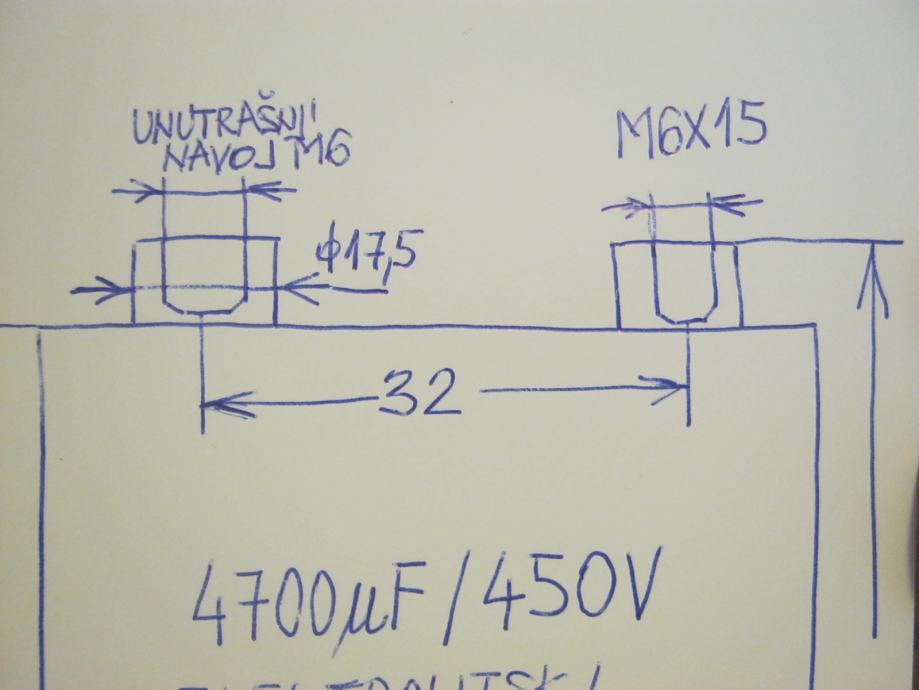 UNUTRAŠNJI
NAVOJ M6
M6X15
ϕ17,5
32
4700µF/450V